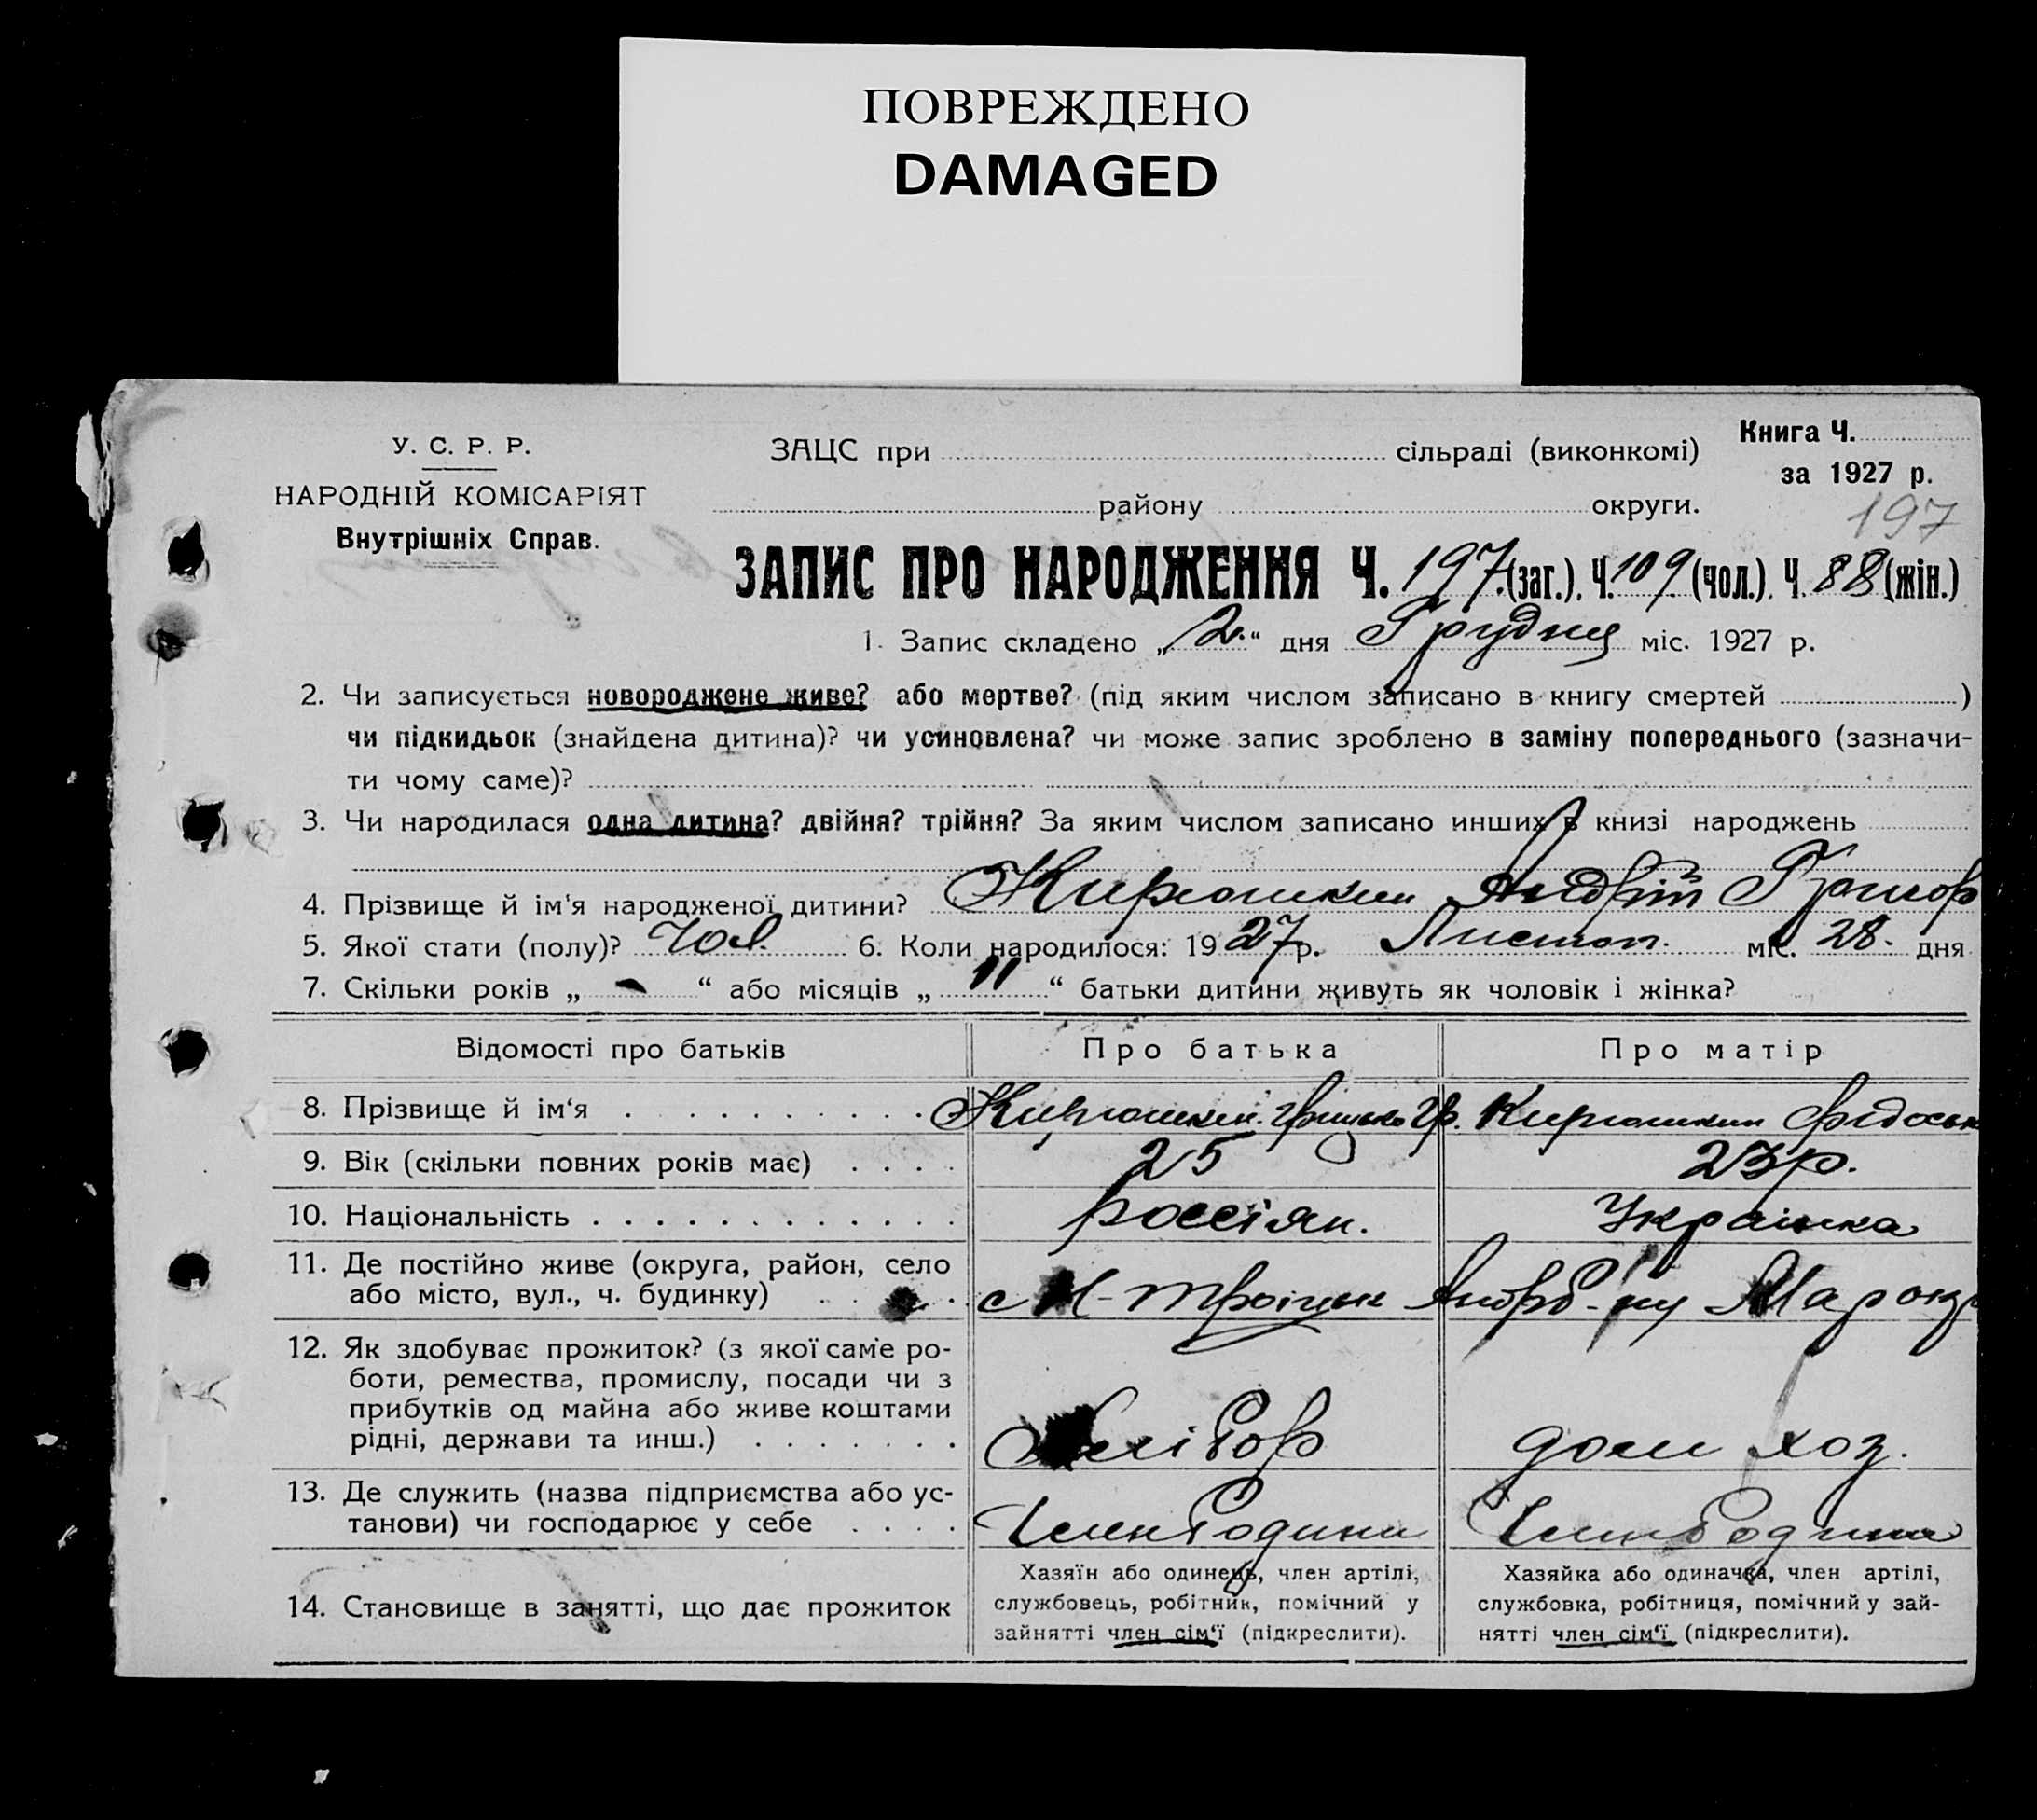 ПОВРЕЖДЕНО
DAMAGED
У. С. Р. Р.
НАРОДНІЙ КОМІСАРІЯТ
Внутрішніх Справ.
ЗАЦС при сільраді (виконкомі)
Книга Ч.
за 1927 р.
району округи.
197
ЗАПИС ПРО НАРОДЖЕННЯ Ч. 197 (заг.). Ч. 109 (чол.). Ч. 88 (жін.)
1. Запис складено „2“ дня Грудня міс. 1927 р.
2. Чи записується новороджене живе? або мертве? (під яким числом записано в книгу смертей )
чи підкидьок (знайдена дитина)? чи усиновлена? чи може запис зроблено в заміну попереднього (зазначи-
ти чому саме)?
3. Чи народилася одна дитина? двійня? трійня? За яким числом записано инших в книзі народжень
4. Прізвище й ім'я народженої дитини? Кирюшкин Андрій Григор
5. Якої стати (полу)? Чол. 6. Коли народилося: 1927 р. Листоп. міс. 28. дня
7. Скільки років „-“ або місяців „11“ батьки дитини живуть як чоловік і жінка?
Відомості про батьків Про батька Про матір
8. Прізвище й ім‘я Кирюшкин Грицько Гр. Кирюшкин Федоськ
9. Вік (скільки повних років має) 25 23 р.
10. Національність россіян. Українка
11. Де постійно живе (округа, район, село
або місто, вул., ч. будинку) с М-Троіцьк
12. Як здобуває прожиток? (з якої саме ро-
боти, ремества, промислу, посади чи з
прибутків од майна або живе коштами
рідні, держави та инш.) дом хоз.
13. Де служить (назва підприємства або ус-
танови) чи господарює у себе Член Родини Член Родини
14. Становище в занятті, що дає прожиток
Хазяїн або одинець, член артілі,
службовець, робітник, помічний у
зайнятті член сім‘ї (підкреслити).
Хазяйка або одиначка, член артілі,
службовка, робітниця, помічний у зай-
нятті член сім‘ї (підкреслити).